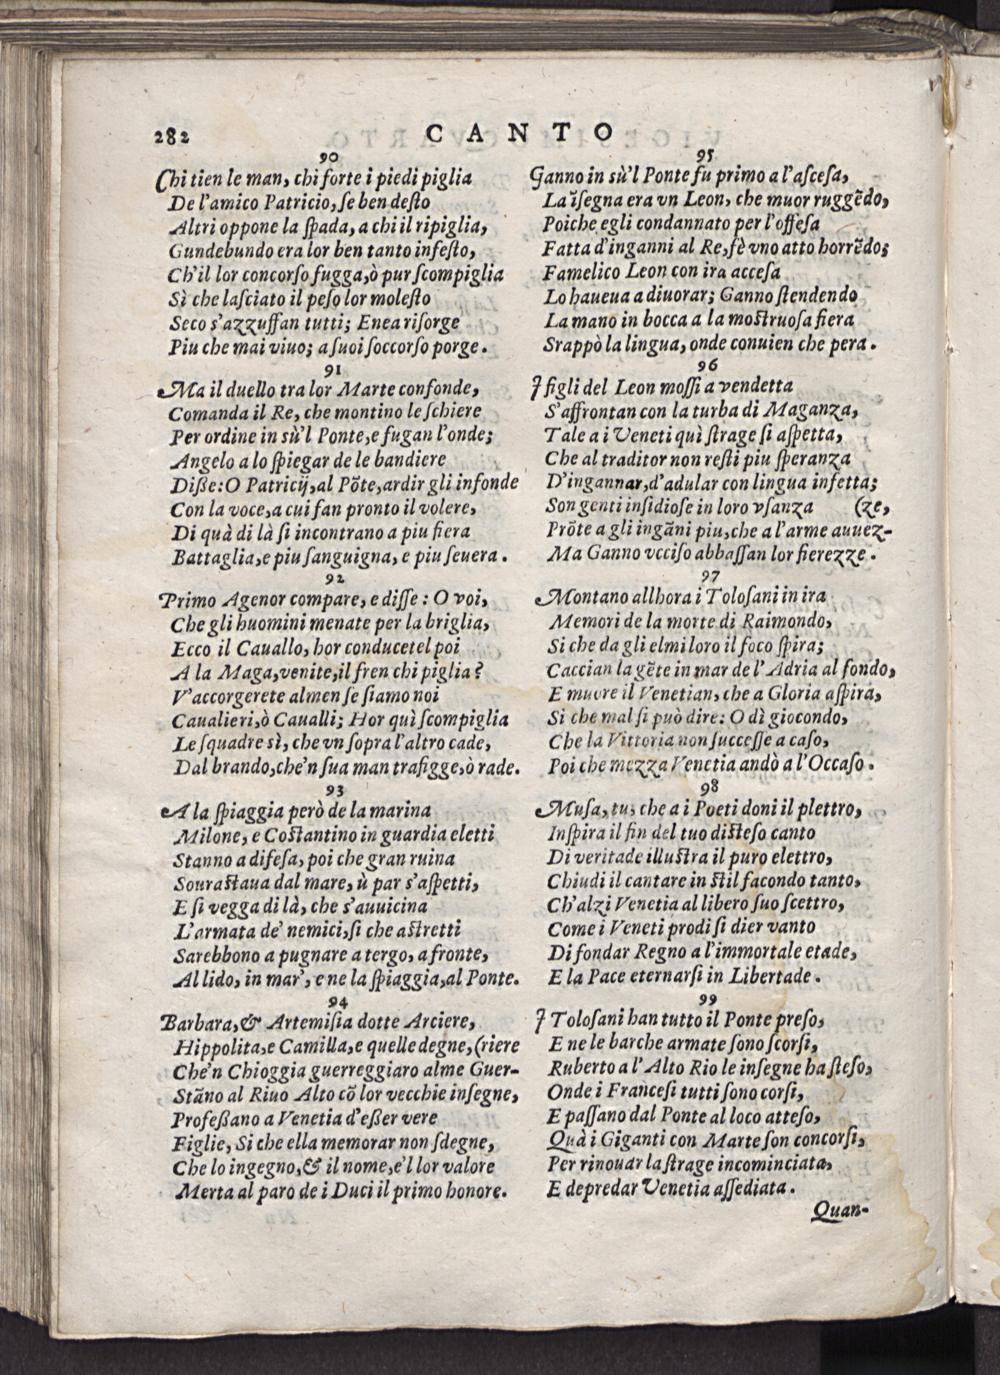 282
CANTO
90
Chi tien le man, chi forte i piedi piglia
De l'amico Patricio, se ben desto
Altri oppone la spada, a chi il ripiglia,
Gundebundo era lor ben tanto infesto,
Ch'il lor concorso fugga, ò pur scompiglia
Sì che lasciato il peso lor molesto
Seco s'azzuffan tutti; Enea risorge
Piu che mai viuo; a suoi soccorso porge.
91
Ma il duello tra lor Marte confonde,
Comanda il Re, che montino le schiere
Per ordine in sù'l Ponte, e fugan l'onde;
Angelo a lo spiegar de le bandiere
Diße: O Patricij, al Põte, ardir gli infonde
Con la voce, a cui fan pronto il volere,
Di quà di là si incontrano a piu fiera
Battaglia, e piu sanguigna, e piu seuera.
92
Primo Agenor compare, e disse: O voi,
Che gli huomini menate per la briglia,
Ecco il Cauallo, hor conducetel poi
A la Maga, venite, il fren chi piglia?
V'accorgerete almen se siamo noi
Caualieri, ò Caualli; Hor quì scompiglia
Le squadre sì, che vn sopra l'altro cade,
Dal brando, che'n sua man trafigge, ò rade.
93
A la spiaggia però de la marina
Milone, e Costantino in guardia eletti
Stanno a difesa, poi che gran ruina
Sourastaua dal mare, ù par s'aspetti,
E si vegga di là, che s'auuicina
L'armata de' nemici, si che astretti
Sarebbono a pugnare a tergo, a fronte,
Al lido, in mar', e ne la spiaggia, al Ponte.
94
Barbara, & Artemisia dotte Arciere,
Hippolita, e Camilla, e quelle degne, (riere
Che'n Chioggia guerreggiaro alme Guer-
Stãno al Riuo Alto cõ lor vecchie insegne,
Profeßano a Venetia d'eßer vere
Figlie, Si che ella memorar non sdegne,
Che lo ingegno, & il nome, e'l lor valore
Merta al paro de i Duci il primo honore.
95
Ganno in sù'l Ponte fu primo a l'ascesa,
La ĩsegna era vn Leon, che muor ruggẽdo,
Poiche egli condannato per l'offesa
Fatta d'inganni al Re, fè vno atto horrẽdo;
Famelico Leon con ira accesa
Lo haueua a diuorar; Ganno stendendo
La mano in bocca a la mostruosa fiera
Srappò la lingua, onde conuien che pera.
96
I figli del Leon mossi a vendetta
S'affrontan con la turba di Maganza,
Tale a i Veneti quì strage si aspetta,
Che al traditor non resti piu speranza
D'ingannar, d'adular con lingua infetta;
Son genti insidiose in loro vsanza (ze,
Prõte a gli ingãni piu, che a l'arme auuez-
Ma Ganno vcciso abbassan lor fierezze.
97
Montano allhora i Tolosani in ira
Memori de la morte di Raimondo,
Si che da gli elmi loro il foco spira;
Caccian la gẽte in mar de l'Adria al fondo,
E muore il Venetian, che a Gloria aspira,
Si che mal si può dire: O dì giocondo,
Che la Vittoria non successe a caso,
Poi che mezza Venetia andò a l'Occaso.
98
Musa, tu, che a i Poeti doni il plettro,
Inspira il fin del tuo disteso canto
Di veritade illustra il puro elettro,
Chiudi il cantare in stil facondo tanto,
Ch'alzi Venetia al libero suo scettro,
Come i Veneti prodi si dier vanto
Di fondar Regno a l'immortale etade,
E la Pace eternarsi in Libertade.
99
I Tolosani han tutto il Ponte preso,
E ne le barche armate sono scorsi,
Ruberto a l'Alto Rio le insegne ha steso,
Onde i Francesi tutti sono corsi,
E passano dal Ponte al loco atteso,
Quà i Giganti con Marte son concorsi,
Per rinouar la strage incominciata,
E depredar Venetia assediata.
Quan-